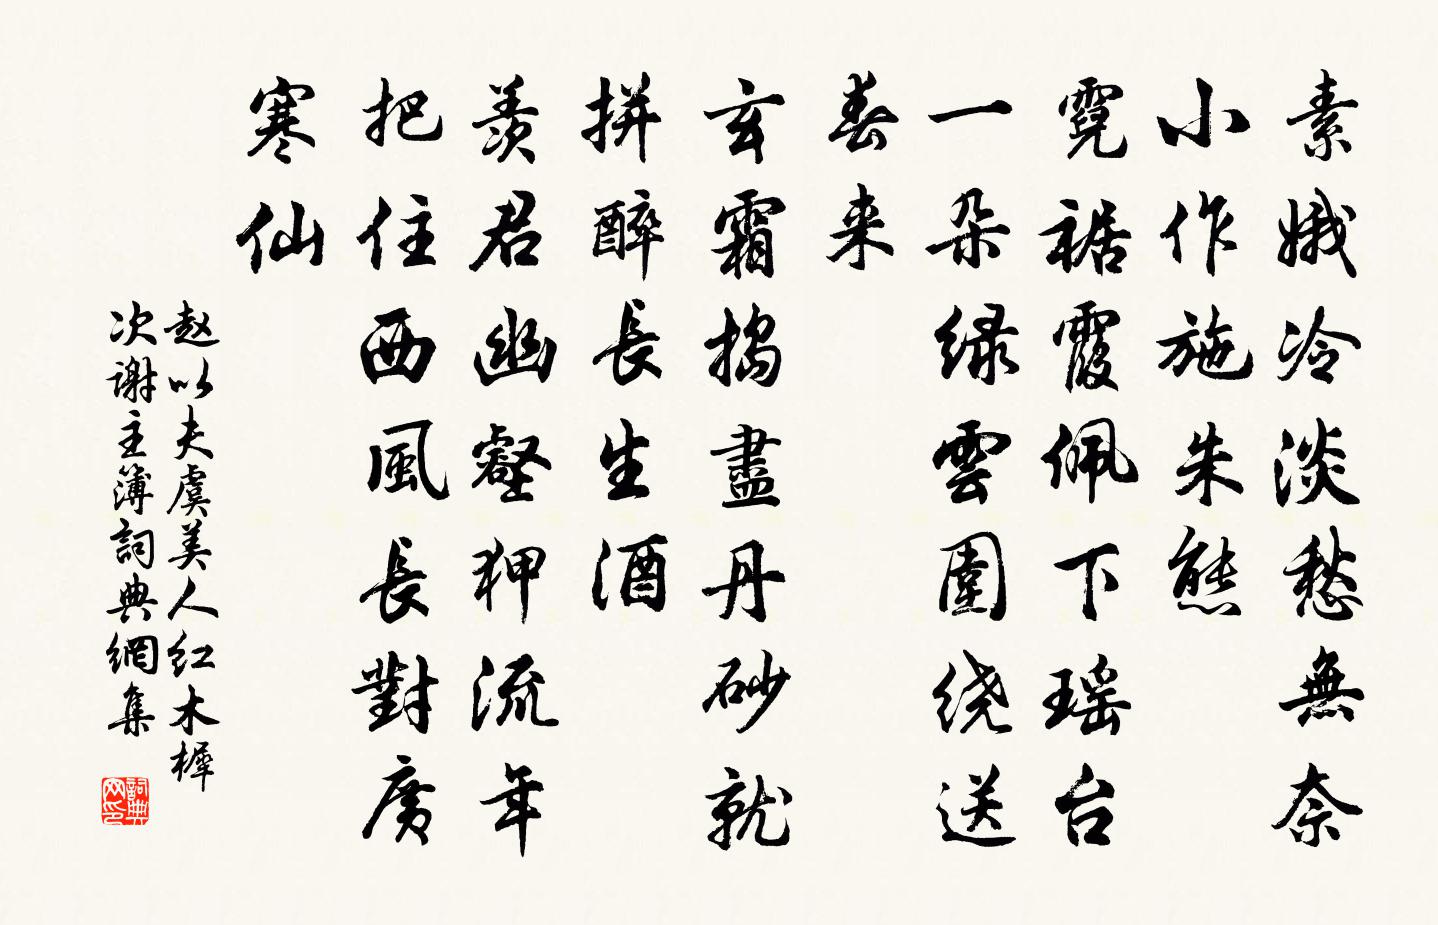 素娥冷淡愁無奈
小作施朱態
霓裾霞佩下瑶台
一朵绿雲圍绕送
春来
玄霜搗盡丹砂就
拼醉長生酒
羨君幽壑狎流年
把住西風長對廣
寒仙
赵以夫虞美人红木樨
次谢主簿詞典網集
詞典
网印